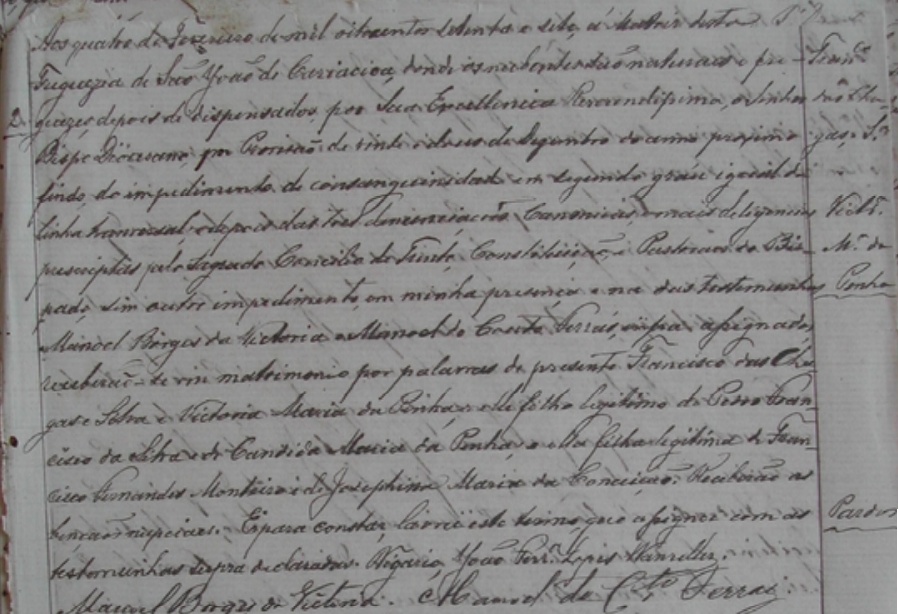 Aos quatro de Fevereiro de mil oitocentos setenta e sete, á Matriz desta
Freguezia de São João de Cariacica, donde os nubentes são naturaes e fre-
guezes depois de dispensados por Sua Excellencia Reverendissima, o Senhor
Bispo Diocesano por Provisão de vinte e dous de Dezembro do anno proximo
findo do impedimento de consanguinidade em segundo grau igual da
linha transversal, e depois das tres denunciações Canonicas, e mais deligencias
prescriptas pelo Sagrado Concilio de Trento, Constituição, e Pastoraes do Bis-
pado, sim outor impedimento, em minha presença e na das testemunhas
Manoel Borges da Victoria e Manoel do Couto Ferraz, supra assignados,
receberão-se em matrimonio por palavras de presente Francisco das Cha-
gas e Silva e Victoria Maria da Penha, elle filho legitimo de Pedro Fran-
cisco da Silva e de Candida Maria da Penha, e ella filha legitima de Fran-
cisco Fernandes Monteiro e de Josephina Maria da Conceição. Receberão as
bençãos nupciaes. E para constar, lavrei este termo que assignei com as
testemunhas supra declaradas. Vigario, João Ferrª Lopes
Manoel Borges da Victoria. Manoel do Cto Ferraz.
Franco
das Cha-
gas e Sª
Victª
Mª da
Penha
Pardos